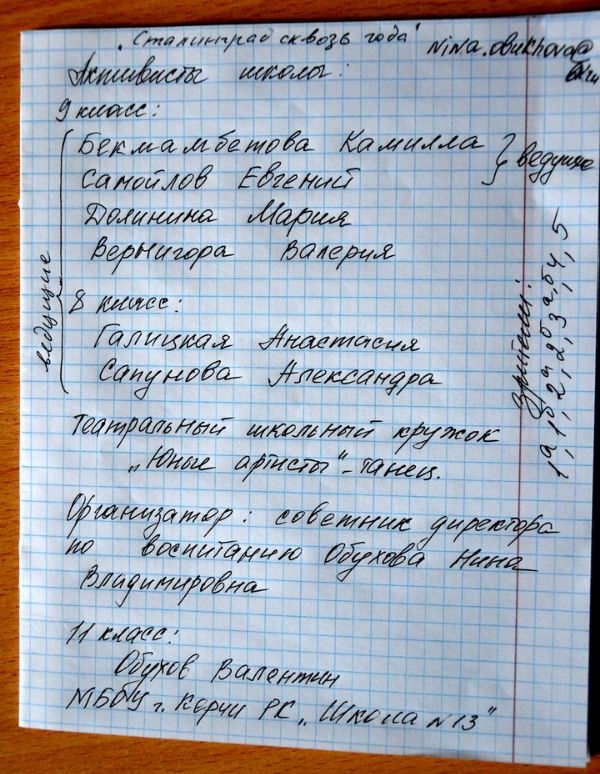 „Сталинград сквозь года"
nina.obukhova@
Активисты школы:
9 класс:
Бекмамбетова Камилла
Самойлов Евгений
} ведущие
Долинина Мария
Вернигора Валерия
8 класс:
Галицкая Анастасия
Сапунова Александра
ведущие
Зрители:
1а, 1б, 2а, 2б, 3а, б, 4, 5
Театральный школьный кружок
„Юные артисты" - танец.
Организатор: советник директора
по воспитанию Обухова Нина
Владимировна
11 класс:
Обухов Валентин
МБОУ г. Керчи РК „Школа №13"